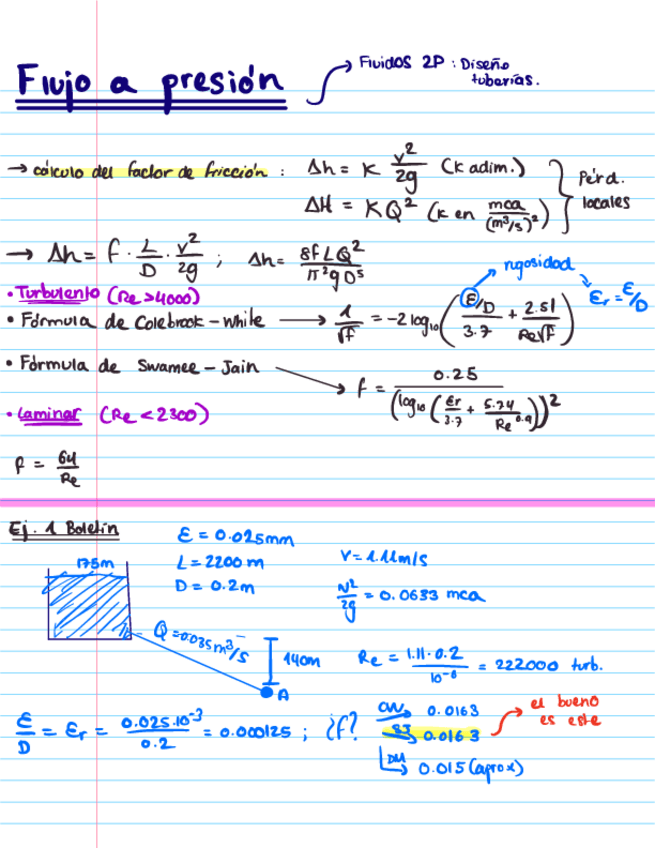 Flujo a presión
Fluidos 2P : Diseño
tuberías.
→ cálculo del factor de fricción : Δh = K v²/2g (K adim.)
ΔH = KQ² (K en mca/(m³/s)²)
Pérd.
locales
→ Δh = f · L/D · v²/2g ; Δh = 8fLQ²/π²gD⁵
rugosidad
εr = ε/D
• Turbulento (Re>4000)
• Fórmula de Colebrook-White → 1/√f = -2 log₁₀ (ε/D/3.7 + 2.51/Re√f)
• Fórmula de Swamee-Jain → f = 0.25/(log₁₀ (εr/3.7 + 5.74/Re^0.9))²
• Laminar (Re < 2300)
f = 64/Re
Ej. 1 Boletín
175m
ε = 0.025mm
L = 2200 m
D = 0.2m
V = 1.11m/s
v²/2g = 0.0633 mca
Q = 0.035 m³/s
140m
A
Re = 1.11·0.2/10⁻⁶ = 222000 turb.
ε/D = εr = 0.025·10⁻³/0.2 = 0.000125 ; ¿f?
CW → 0.0163
SJ → 0.0163
DM → 0.015 (aprox)
el bueno
es este